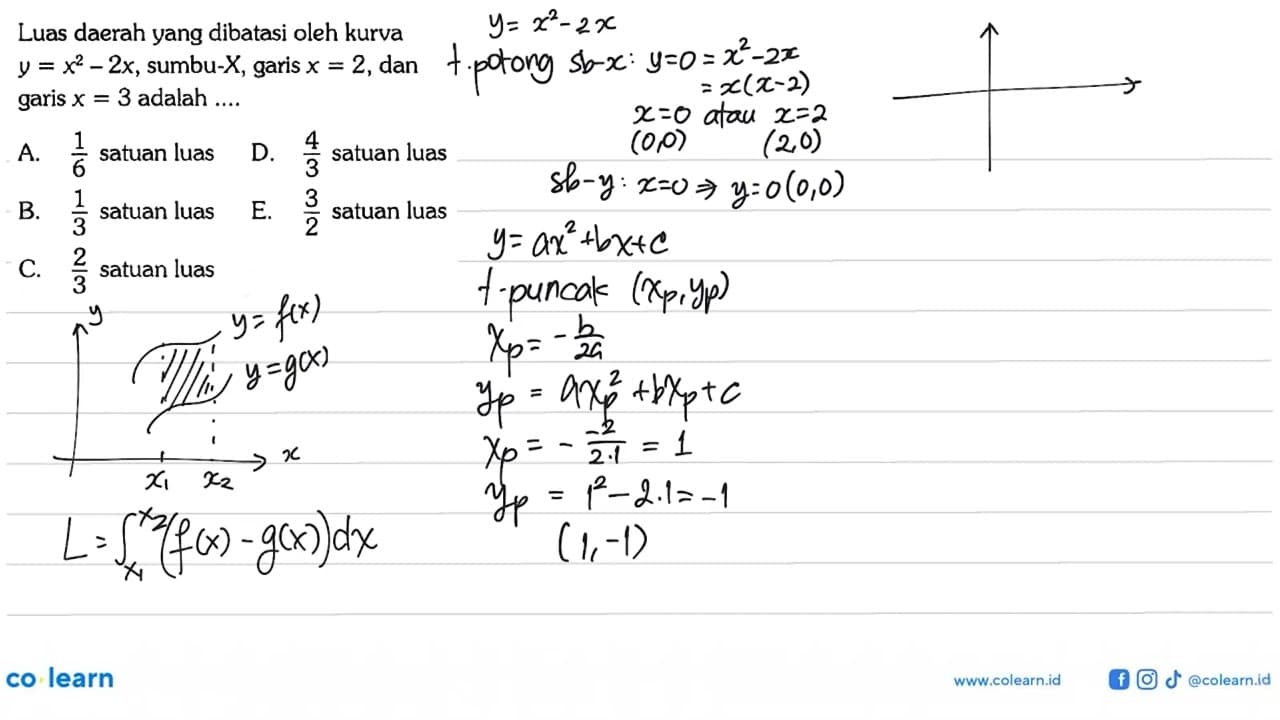 Luas daerah yang dibatasi oleh kurva
y = x² – 2x, sumbu-X, garis x = 2, dan
garis x = 3 adalah ....
A. 1/6 satuan luas D. 4/3 satuan luas
B. 1/3 satuan luas E. 3/2 satuan luas
C. 2/3 satuan luas
y
y = f(x)
y = g(x)
x
x₁ x₂
L = ∫_{x₁}^{x₂} (f(x) - g(x)) dx
y = x² - 2x
t.potong sb-x: y=0 = x² - 2x
= x(x-2)
x=0 atau x=2
(0,0) (2,0)
sb-y: x=0 ⇒ y=0 (0,0)
y = ax² + bx + c
t.puncak (xp, yp)
xp = - b/2a
yp = axp² + bxp + c
xp = - -2/2.1 = 1
yp = 1² - 2.1 = -1
(1, -1)
co learn
www.colearn.id @colearn.id